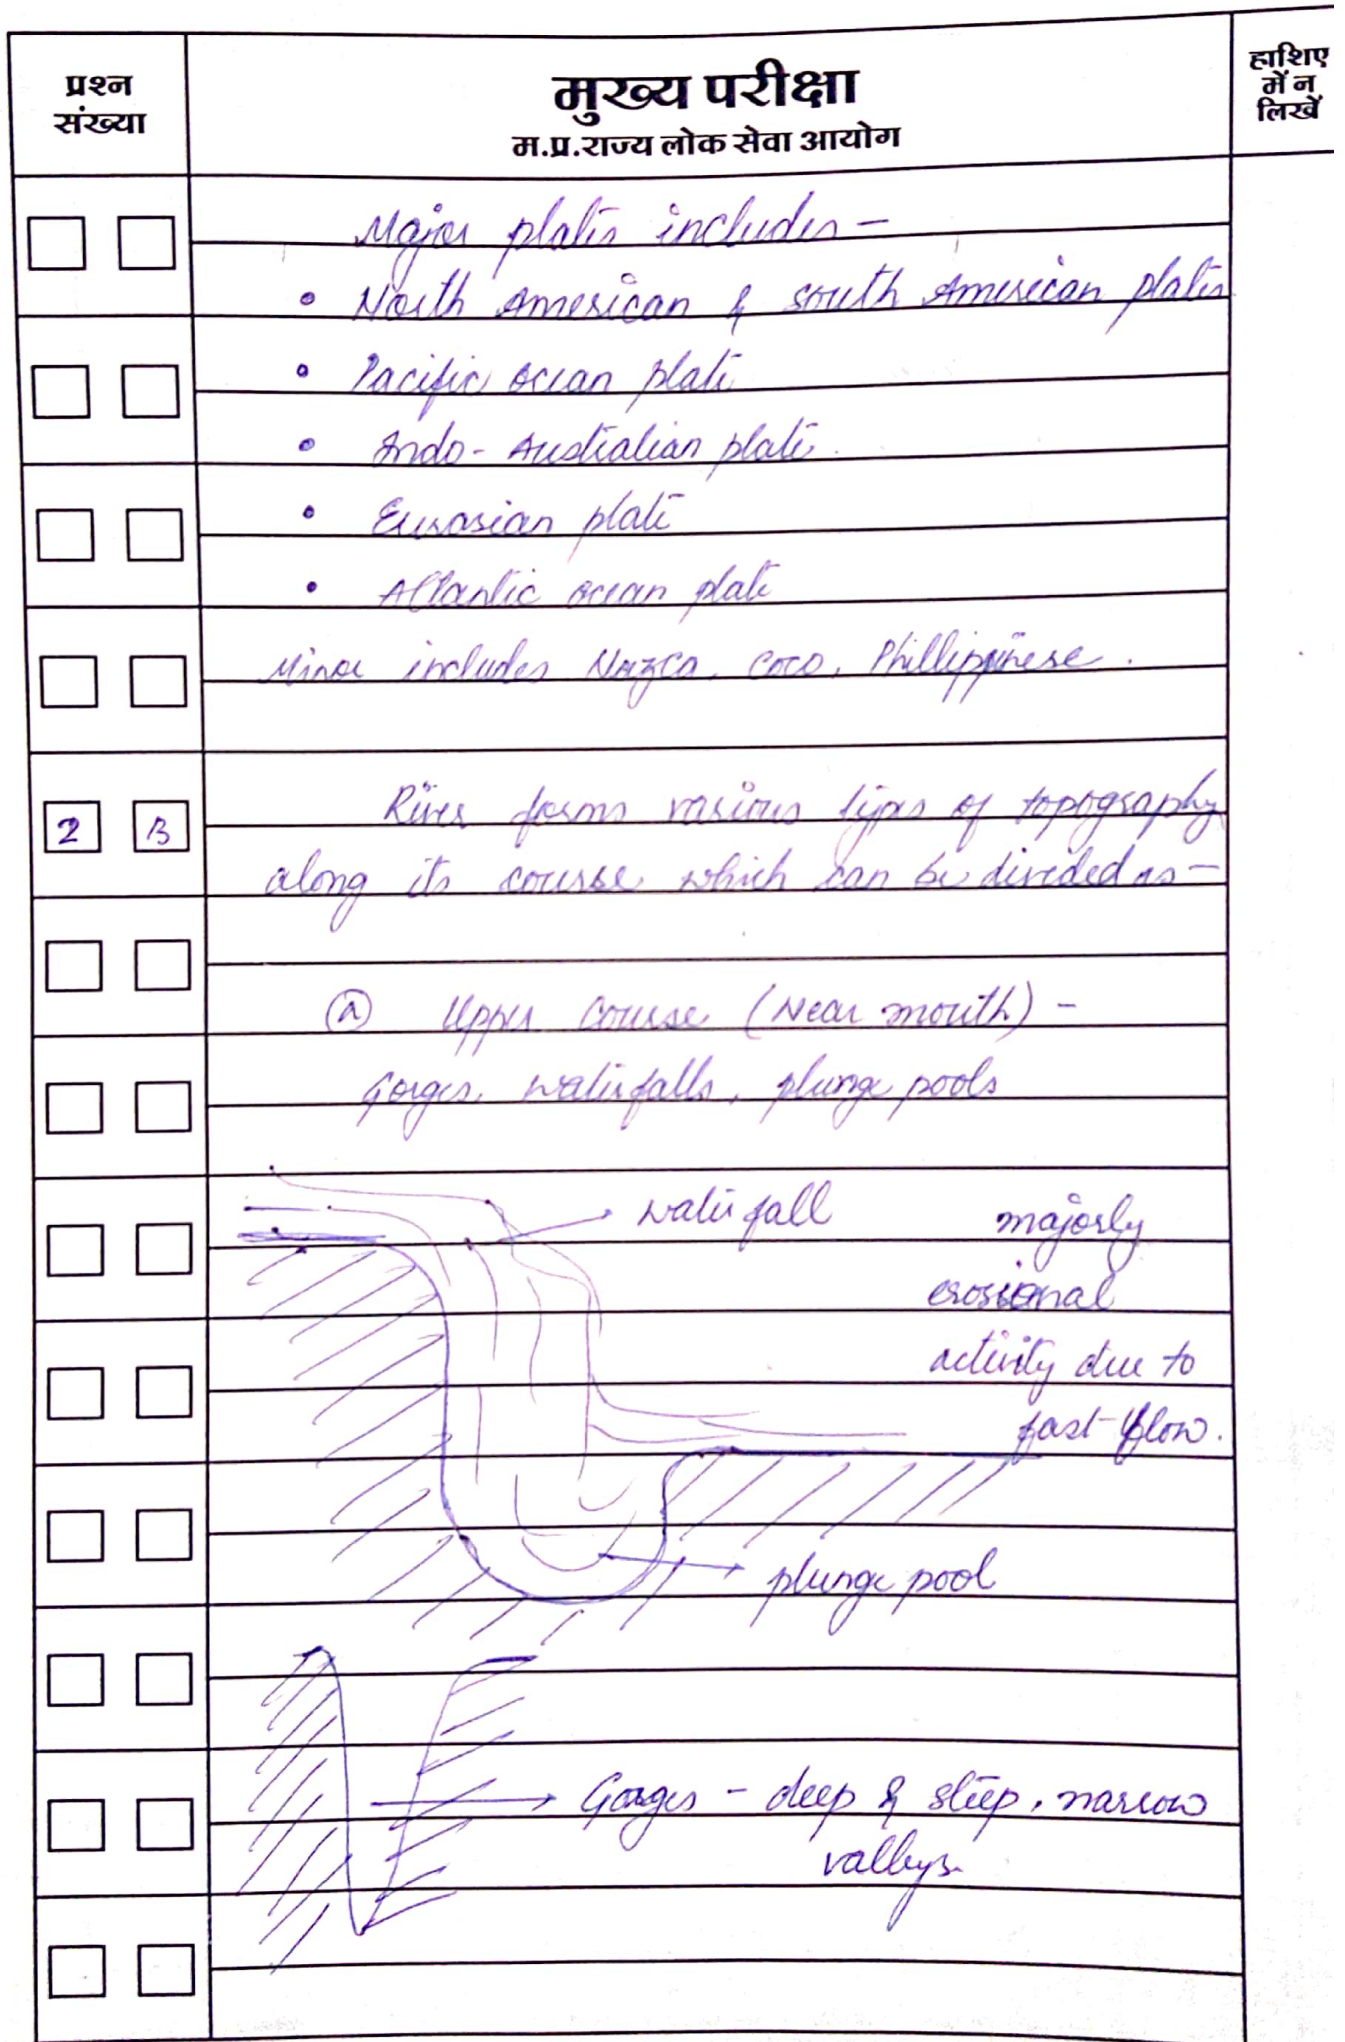 प्रश्न
संख्या
मुख्य परीक्षा
म.प्र.राज्य लोक सेवा आयोग
हाशिए
में न
लिखें
Major plates includes –
• North American & south American plates
• Pacific ocean plate
• Indo-Australian plate.
• Eurasian plate
• Atlantic ocean plate
Minor includes Nazca, Coco, Phillippinese.
2 B
River forms various types of topography
along its course which can be divided as –
(a) Upper Course (Near mouth) –
Gorges, waterfalls, plunge pools
waterfall
majorly
erosional
activity due to
fast flow.
plunge pool
Gorges – deep & steep, narrow
valleys.